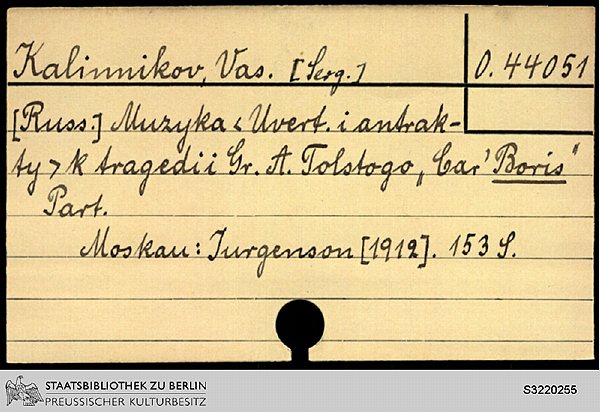 Kalinnikov, Vas. [Serg.]
O. 44051
[Russ.] Muzyka < Uvert. i antrak-
ty > k tragedii Gr. A. Tolstogo „Car' Boris"
Part.
Moskau: Jurgenson [1912]. 153 S.
STAATSBIBLIOTHEK ZU BERLIN
PREUSSISCHER KULTURBESITZ
S3220255